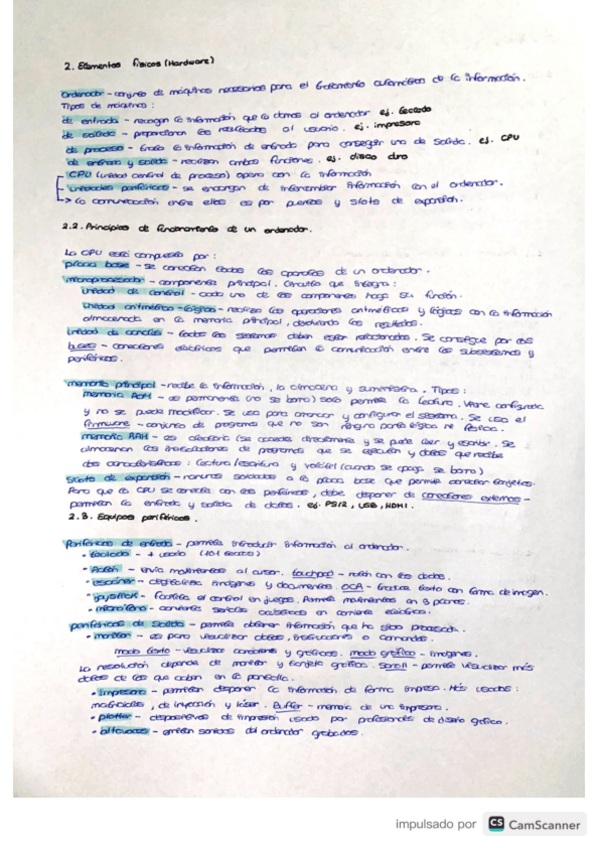 2. Elementos físicos (Hardware)
Ordenador - conjunto de máquinas necesarias para el tratamiento automático de la información.
Tipos de máquinas:
de entrada - recogen la información que la damos al ordenador ej. teclado
de salida - proporcionan los resultados al usuario. ej. impresora
de proceso - trata la información de entrada para conseguir una de salida. ej. CPU
de entrada y salida - realizan ambas funciones. ej. disco duro
CPU (unidad central de proceso) opera con la información
unidades periféricas - se encargan de intercambiar información con el ordenador.
→ la comunicación entre ellos es por puertos y slots de expansión.
2.2. Principios de funcionamiento de un ordenador.
La CPU está compuesta por:
placa base - se conectan todos los aparatos de un ordenador.
microprocesador - componente principal. Circuito que integra:
unidad de control - cada uno de los componentes haga su función.
unidad aritmético-lógica - realiza las operaciones aritméticas y lógicas con la información
almacenada en la memoria principal, devolviendo los resultados.
unidad de canales - todos los sistemas deben estar relacionados. Se consigue por los
buses - conexiones eléctricas que permiten la comunicación entre los subsistemas y
periféricos.
memoria principal - recibe la información, la almacena y suministra. Tipos:
memoria ROM - es permanente (no se borra) solo permite la lectura. Viene configurada
y no se puede modificar. Se usa para arrancar y configurar el sistema. Se usa el
firmware - conjunto de programas que no son ninguna parte lógica ni física.
memoria RAM - es aleatoria (se accede directamente y se puede leer y escribir. Se
almacenan las instrucciones de programas que se ejecutan y datos que recibe
dos características: lectura/escritura y volátil (cuando se apaga se borra)
Slots de expansión - ranuras soldadas a la placa base que permite conectar tarjetas.
Para que la CPU se conecte con los periféricos, debe disponer de conectores externos -
permiten la entrada y salida de datos. ej. PS/2, USB, HDMI.
2.3. Equipos periféricos.
Periféricos de entrada - permite introducir información al ordenador.
• teclado - + usado (101 teclas)
• Ratón - envía movimientos al cursor. touchpad - ratón con los dedos.
• escáner - digitaliza imágenes y documentos OCR - traduce texto con forma de imagen.
• joystick - facilita el control en juegos. Permite movimientos en 3 planos.
• micrófono - convierte señales acústicas en corriente eléctrica.
periféricos de salida - permite obtener información que ha sido procesada.
• monitor - es para visualizar datos, instrucciones o comandos.
modo texto - visualizar caracteres y gráficos. modo gráfico - imágenes.
La resolución depende de monitor y tarjeta gráfica. Scroll - permite visualizar más
datos de los que caben en la pantalla.
• impresora - permiten disponer la información de forma impresa. Más usados:
matriciales, de inyección y láser. Buffer - memoria de una impresora.
• plotter - dispositivos de impresión usado por profesionales de diseño gráfico.
• altavoces - emiten sonidos del ordenador grabados.
impulsado por CS CamScanner